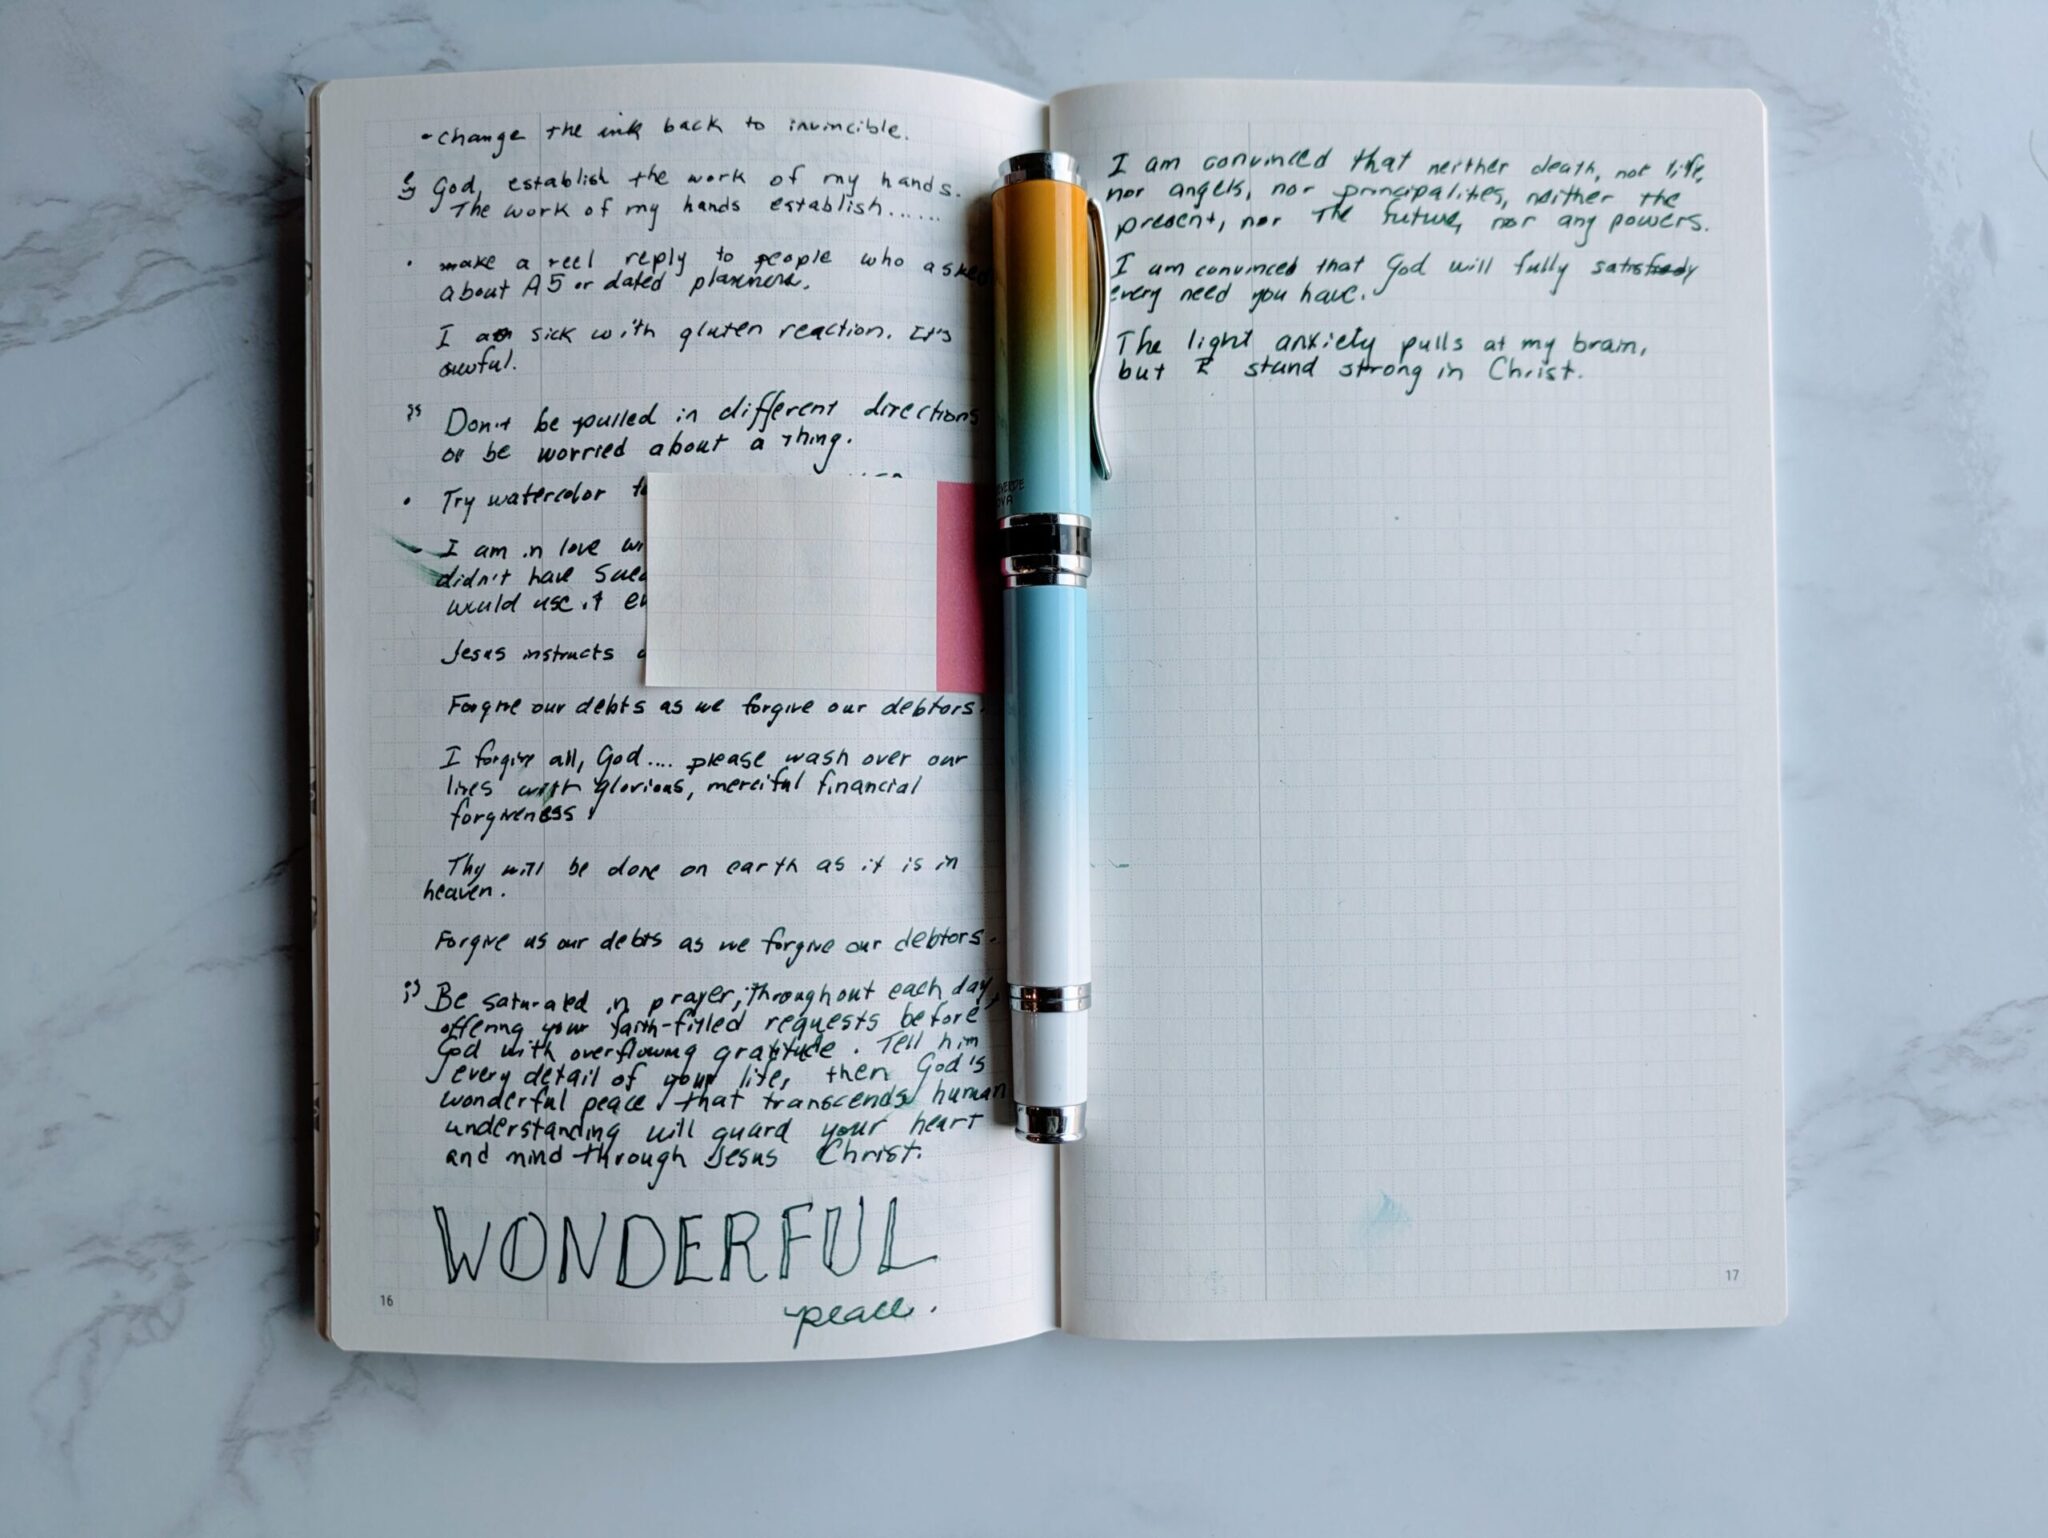 - change the ink back to invincible.
God, establish the work of my hands.
The work of my hands establish......
· make a reel reply to people who asked
about A5 or dated planners.
I am sick with gluten reaction. It's
awful.
Don't be pulled in different directions
or be worried about a thing.
· Try watercolor
I am in love
didn't have
would use it
Jesus instructs
Forgive our debts as we forgive our debtors.
I forgive all, God.... please wash over our
lives with glorious, merciful financial
forgiveness!
Thy will be done on earth as it is in
heaven.
Forgive us our debts as we forgive our debtors.
Be saturated in prayer, throughout each day,
offering your faith-filled requests before
God with overflowing gratitude. Tell him
every detail of your life, then God's
wonderful peace that transcends human
understanding will guard your heart
and mind through Jesus Christ.
WONDERFUL
peace.
16
I am convinced that neither death, nor life,
nor angels, nor principalities, neither the
present, nor the future, nor any powers.
I am convinced that God will fully
every need you have.
The light anxiety pulls at my brain,
but I stand strong in Christ.
17